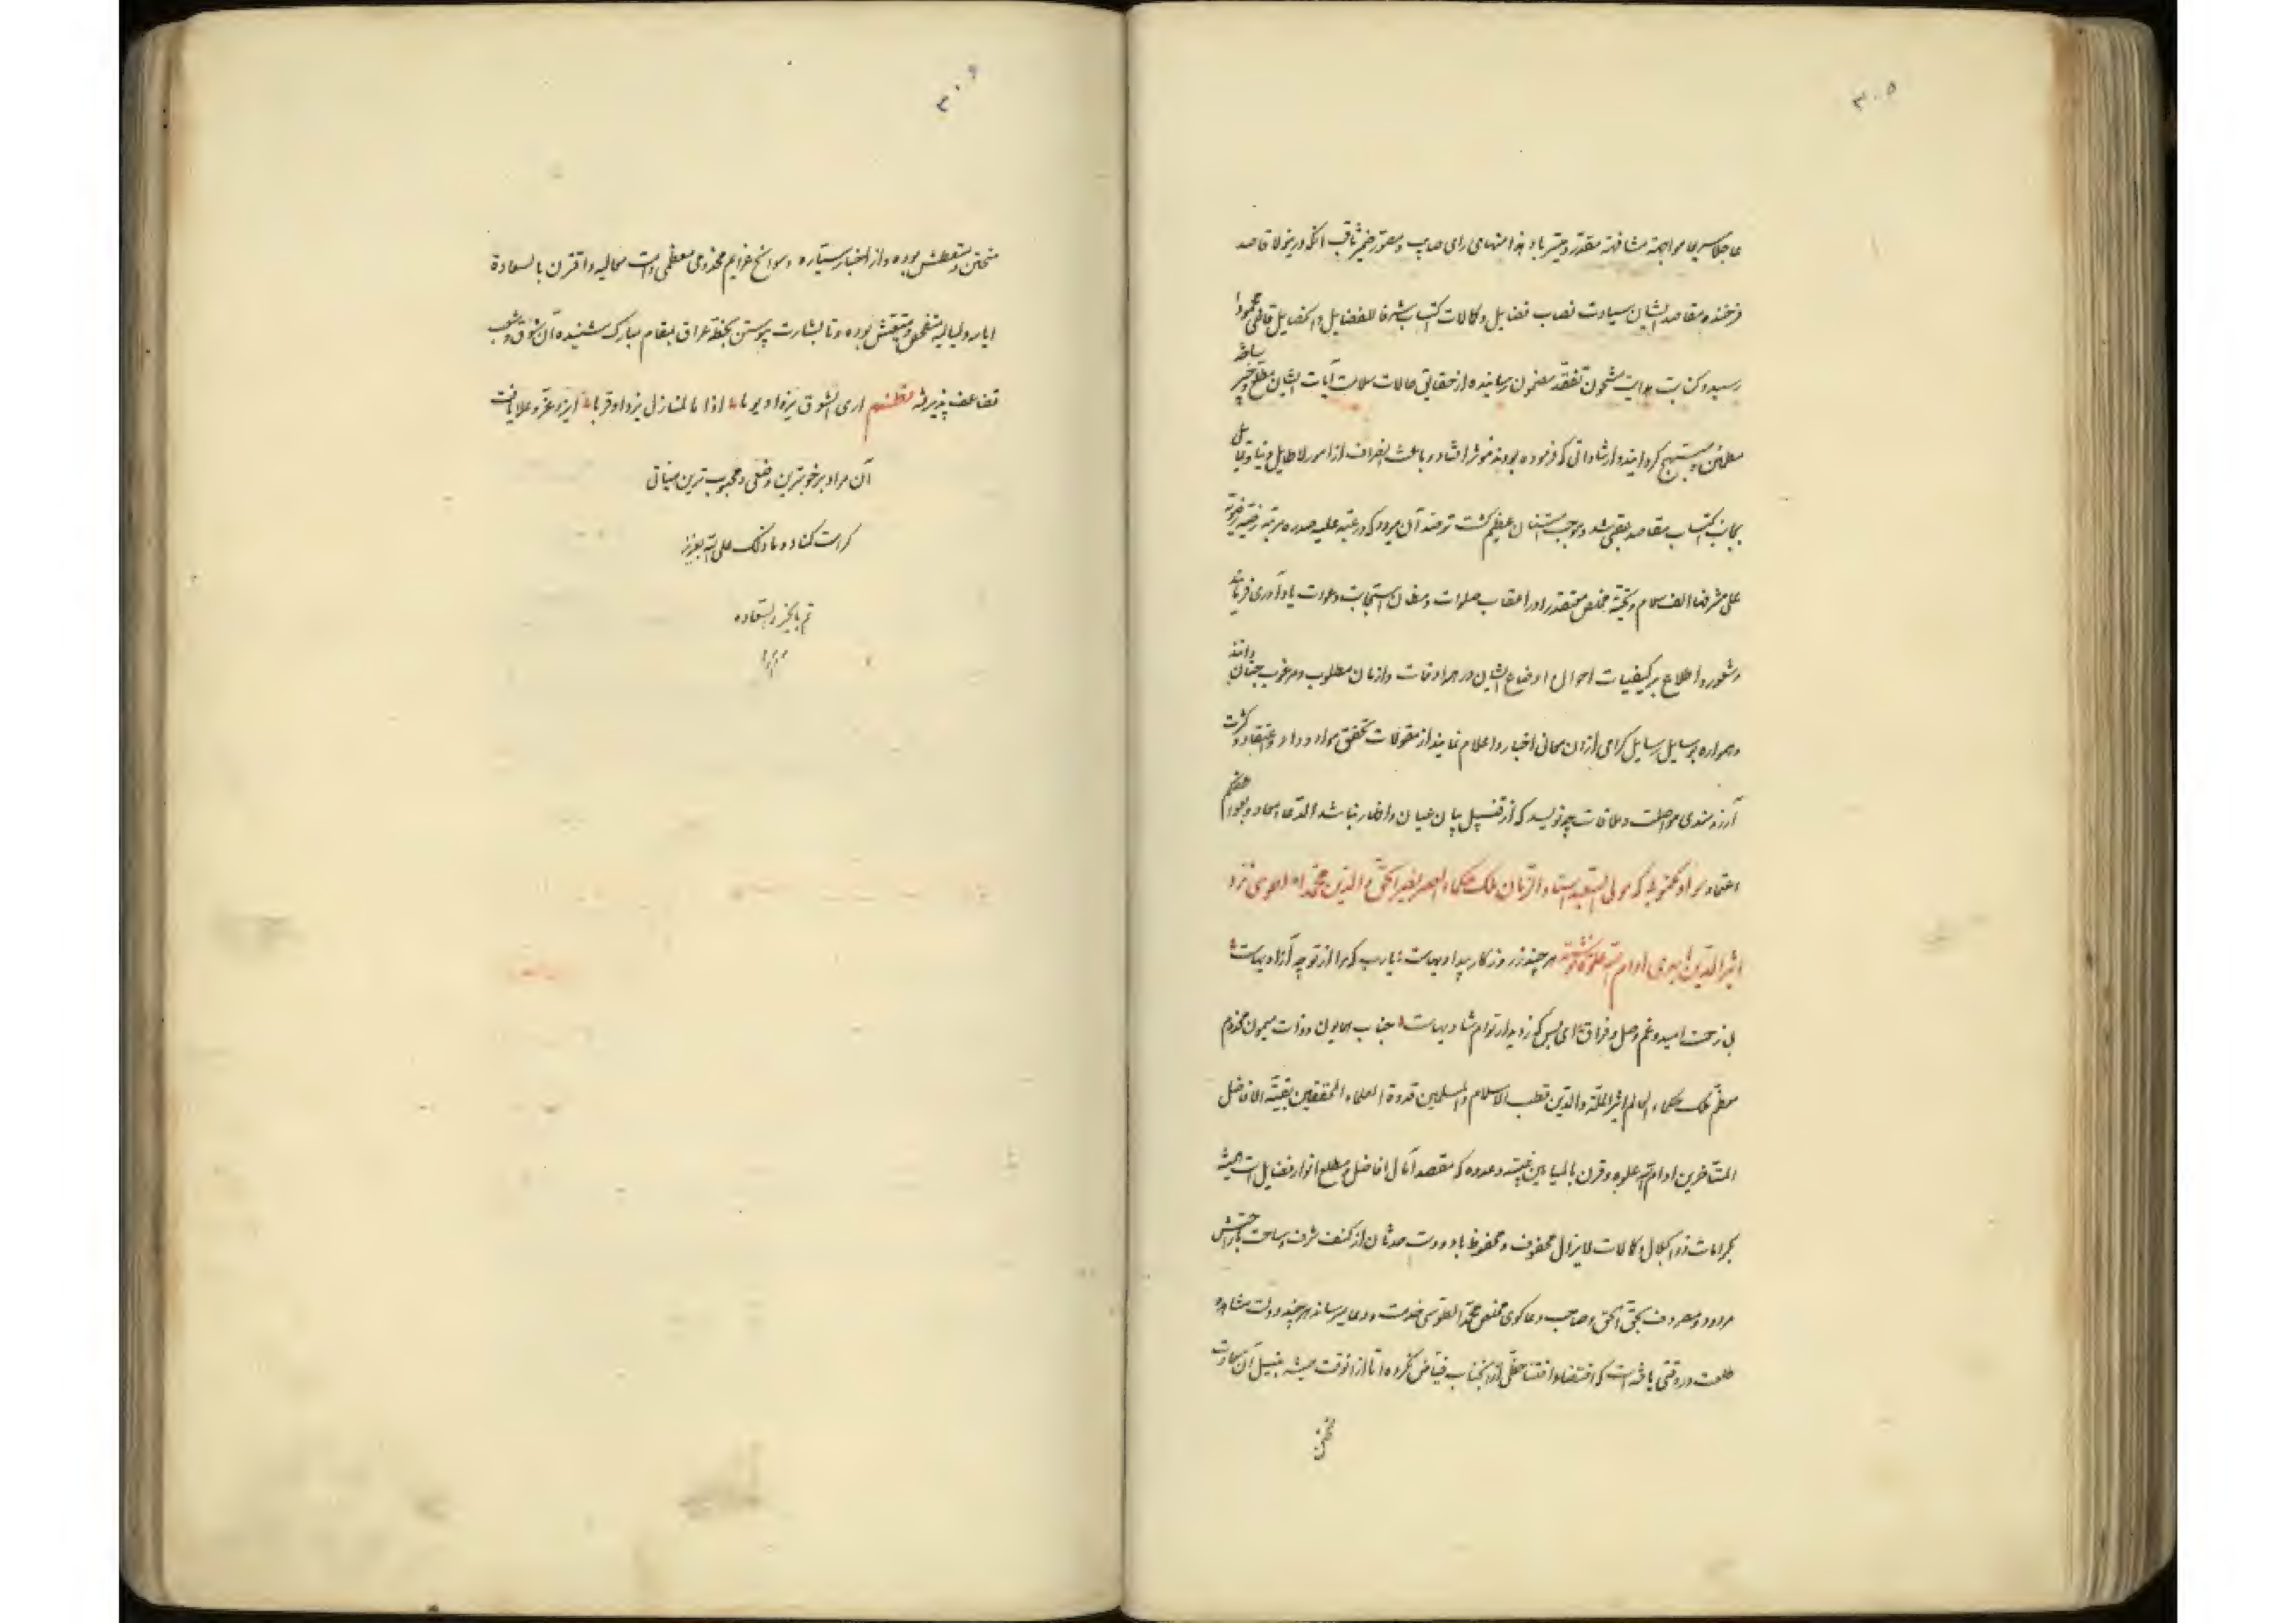 ۳۰۵
عاجلا سریعا مواجهة مشافهة مقدر و میسر باد بعد هذا منهای رای صایب و مصور ضمیر ثاقب آنکه درینولا قاصد
فرخنده مقاصد ایشان سیادت نصاب فضایل و کمالات اکتساب شرفا للفضایل و الخصایل قاضی محمودا
رسید و کتابت هدایت مشحون تفقد مضمون رسانیده از حقایق حالات سلامت آیات ایشان مطلع و خبیر ساخته
مطمئن و مبتهج گردانید و ارشاداتی که فرموده بودند مؤثر افتاد و باعث انصراف از امور لا طایل دنیا و تمایل
بجانب اکتساب مقاصد عقبی شد و موجب امتنان عظیم گشت ترصد آن میرود که در عتبه علیه سدره مرتبه رضیه رضویه
علی مشرفها الف سلام و تحیة مخلص معتقد را در اعقاب صلوات و مظان استجابت دعوات یادآوری فرمایند
و شعور و اطلاع بر کیفیات احوال و اوضاع ایشان در همه اوقات و ازمان مطلوب و مرغوب جنان دانند
و همواره بوسایل رسایل گرامی از آن معانی اخبار و اعلام نمایند از مقولات تحقق مواد وداد و اعتقاد و کثرت
آرزومندی مواصلت و ملاقات چه نویسد که از قبیل بیان عیان و اظهار نباشد الدعاء معاد و بعواطفکم
اعتماد سواد مکتوبیکه مولی السعید استاد الزمان ملک حکماء العصر نصیر الحق و الدین محمد الطوسی نزد
اثیر الدین ابهری ادام الله علوه نوشته هر چند ز روزگار بیدادیهاست یارب که مرا از تو چه آزادیهاست
بی زحمت امید و غم وصل و فراق ای بس که ز دیدار توام شادیهاست جناب همایون و ذات میمون مخدوم
معظم ملک حکماء العالم اثیر الملة و الدین قطب الاسلام و المسلمین قدوة العلماء المحققین بقیة الافاضل
المتأخرین ادام الله علوه و قرن بالمیامن عشیته و غدوه که مقصد آمال افاضل و مطلع انوار فضایل است همیشه
بکرامات ذو الجلال و کمالات لایزال محفوف و محفوظ باد و دست حدثان از کنف شرف و ساحت بارگاهش
مردود و مصروف بحق الحق و صاحب دعاگوی مخلص محمد الطوسی خدمت و دعا میرساند هر چند دولت مشاهده
طلعت در وقتی یافته است که اقتضاء اقتنا حظی از آن جناب فیاض نکرده اما از آنوقت همیشه بنیل آن سعادت
۳۰۶
متحنن و متعطش بوده و از اخبار سیاره و سوانح عزایم مخدومی معظمی دامت معالیه و اقترن بالسعادة
ایامه و لیالیه متفحص و متفتش بوده و تا بشارت پیوستن بخطه عراق بمقام مبارک شنیده آن شوق و شعب
تضاعف پذیرفته نظم اری الشوق یزداد یوما اذا ما المنازل یزداد قربا ایزد عز و علا یافت
آن مراد بر خوبترین وضعی و محبوب ترین هیأتی
کرامت کناد و ما ذلک علی الله بعزیز
تم بالخیر و السعادة